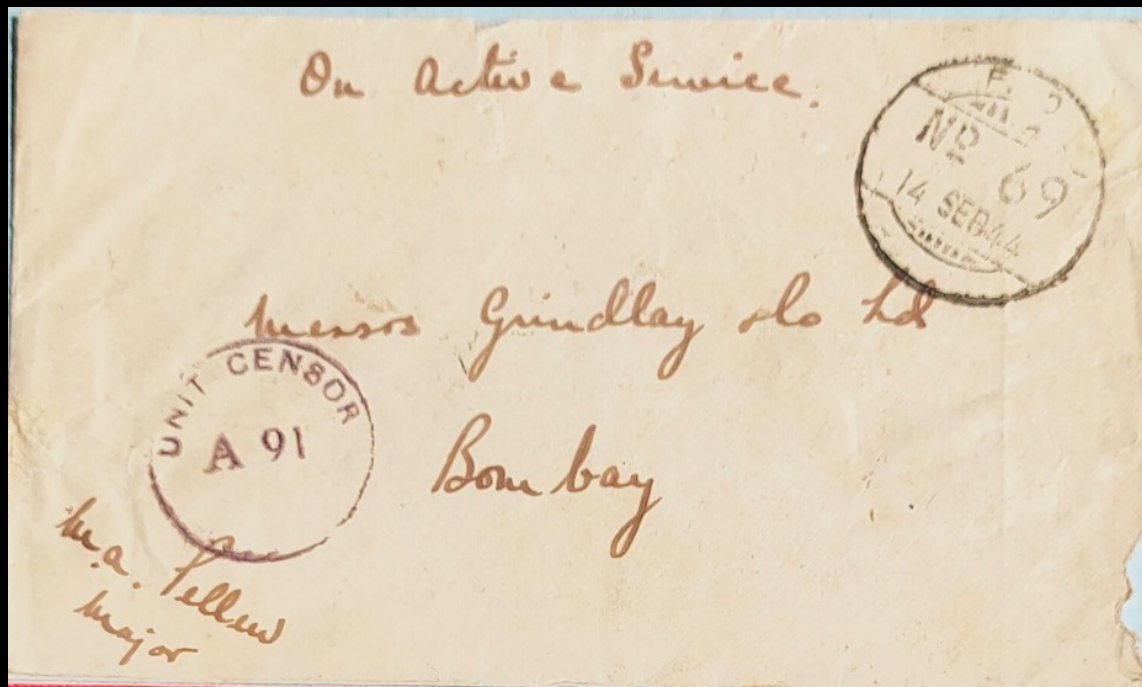 On Active Service.
F. P
No 69
14 SEP 44
Messrs Grindlay & Co Ltd
UNIT CENSOR
A 91
Bombay
M.A. Pellew
Major